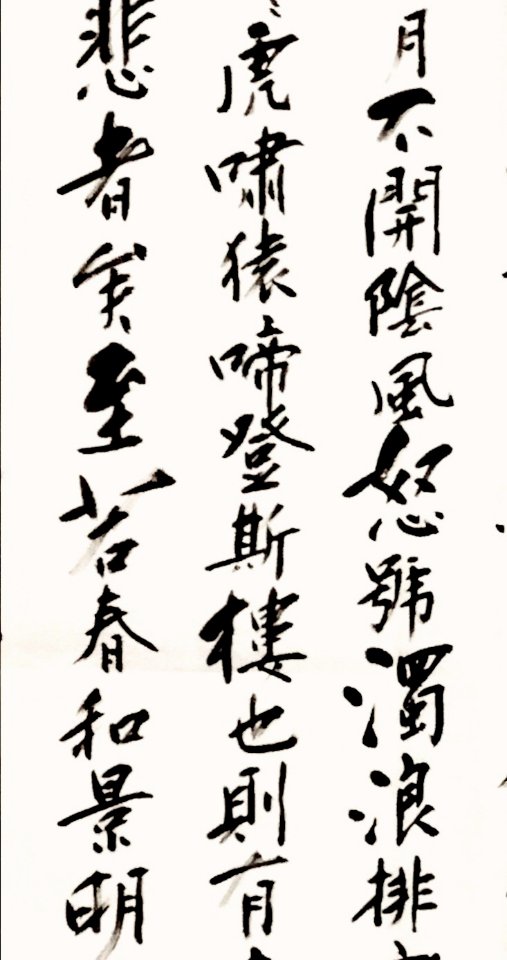 月不開陰風怒號濁浪排
虎嘯猿啼登斯樓也則有
悲者矣至若春和景明